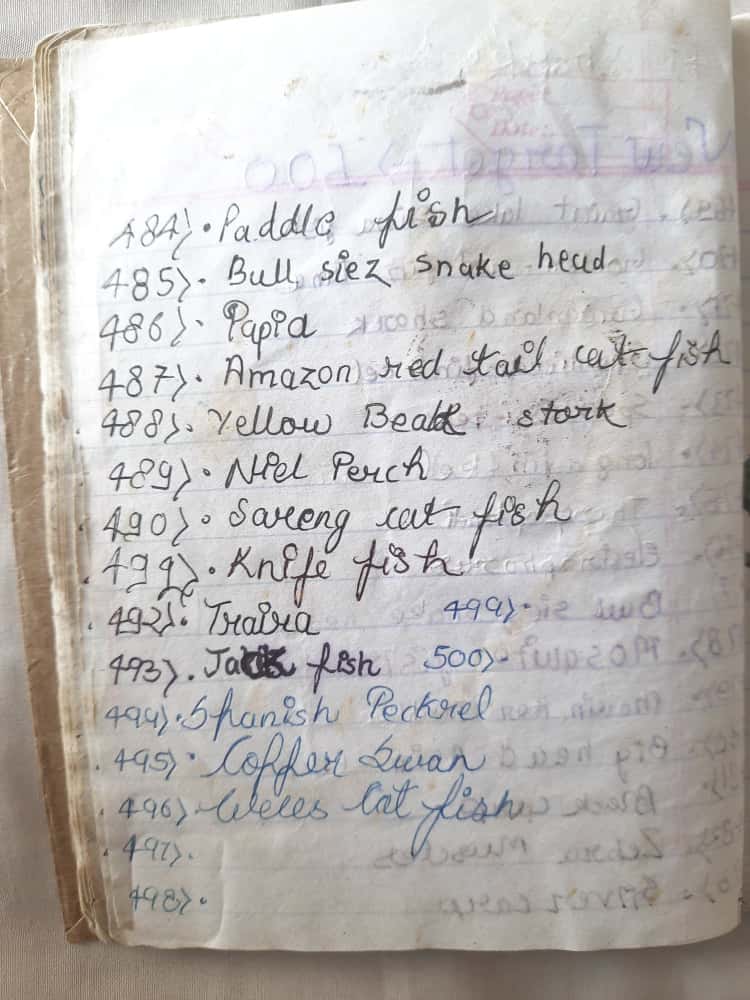 484). Paddle fish
485). Bull siez snake head
486). Papia
487). Amazon red tail cat fish
488). Yellow Beak stork
489). Niel Perch
490). Sareng cat fish
499). Knife fish
492). Traira 499).
493). Jack fish 500).
494). Spanish Peckrel
495). Coffer Swan
496). Weles Cat fish
497).
498).